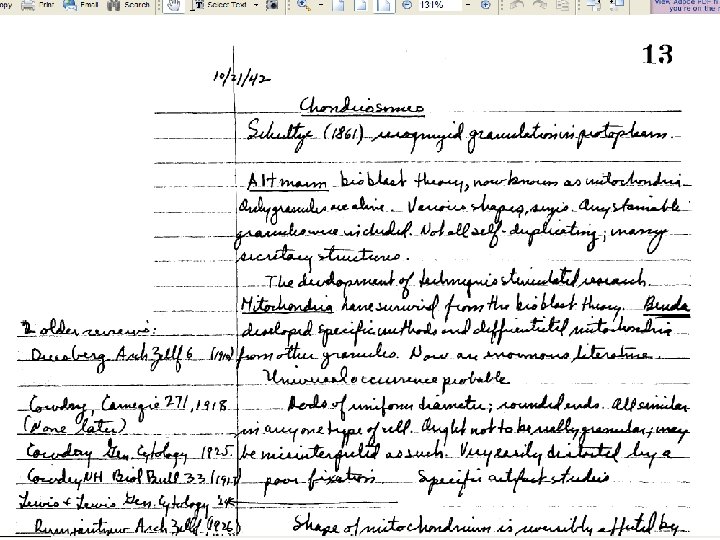 opy Print Email Search Select Text 131%
View Adobe PDF fi
you're on the r
13
10/21/42
Chondriosomes
Schultze (1861) recognized granulation in protoplasm.
Altmann bioblast theory, now known as mitochondria
Only granules are alive. Various shapes, sizes. Any stainable
granules were included. Not all self-duplicating; many
secretory structures.
The development of technique stimulated research.
Mitochondria have survived from the bioblast theory. Benda
2 older reviews: developed specific methods and differentiated mitochondria
Duesberg Arch Zellf 6 from other granules. Now an enormous literature.
Universal occurrence probable
Cowdry, Carnegie 271, 1918 Rods of uniform diameter; rounded ends. All similar
(None later) in any one type of cell. Ought not to be really granular; may
Cowdry Gen. Cytology 1925. be misinterpreted as such. Very easily distorted by a
Cowdry NH Biol Bull 33 poor fixation Specific artifact studies
Lewis + Lewis Gen. Cytology
Arch Zellf Shape of mitochondrium is reversibly affected by